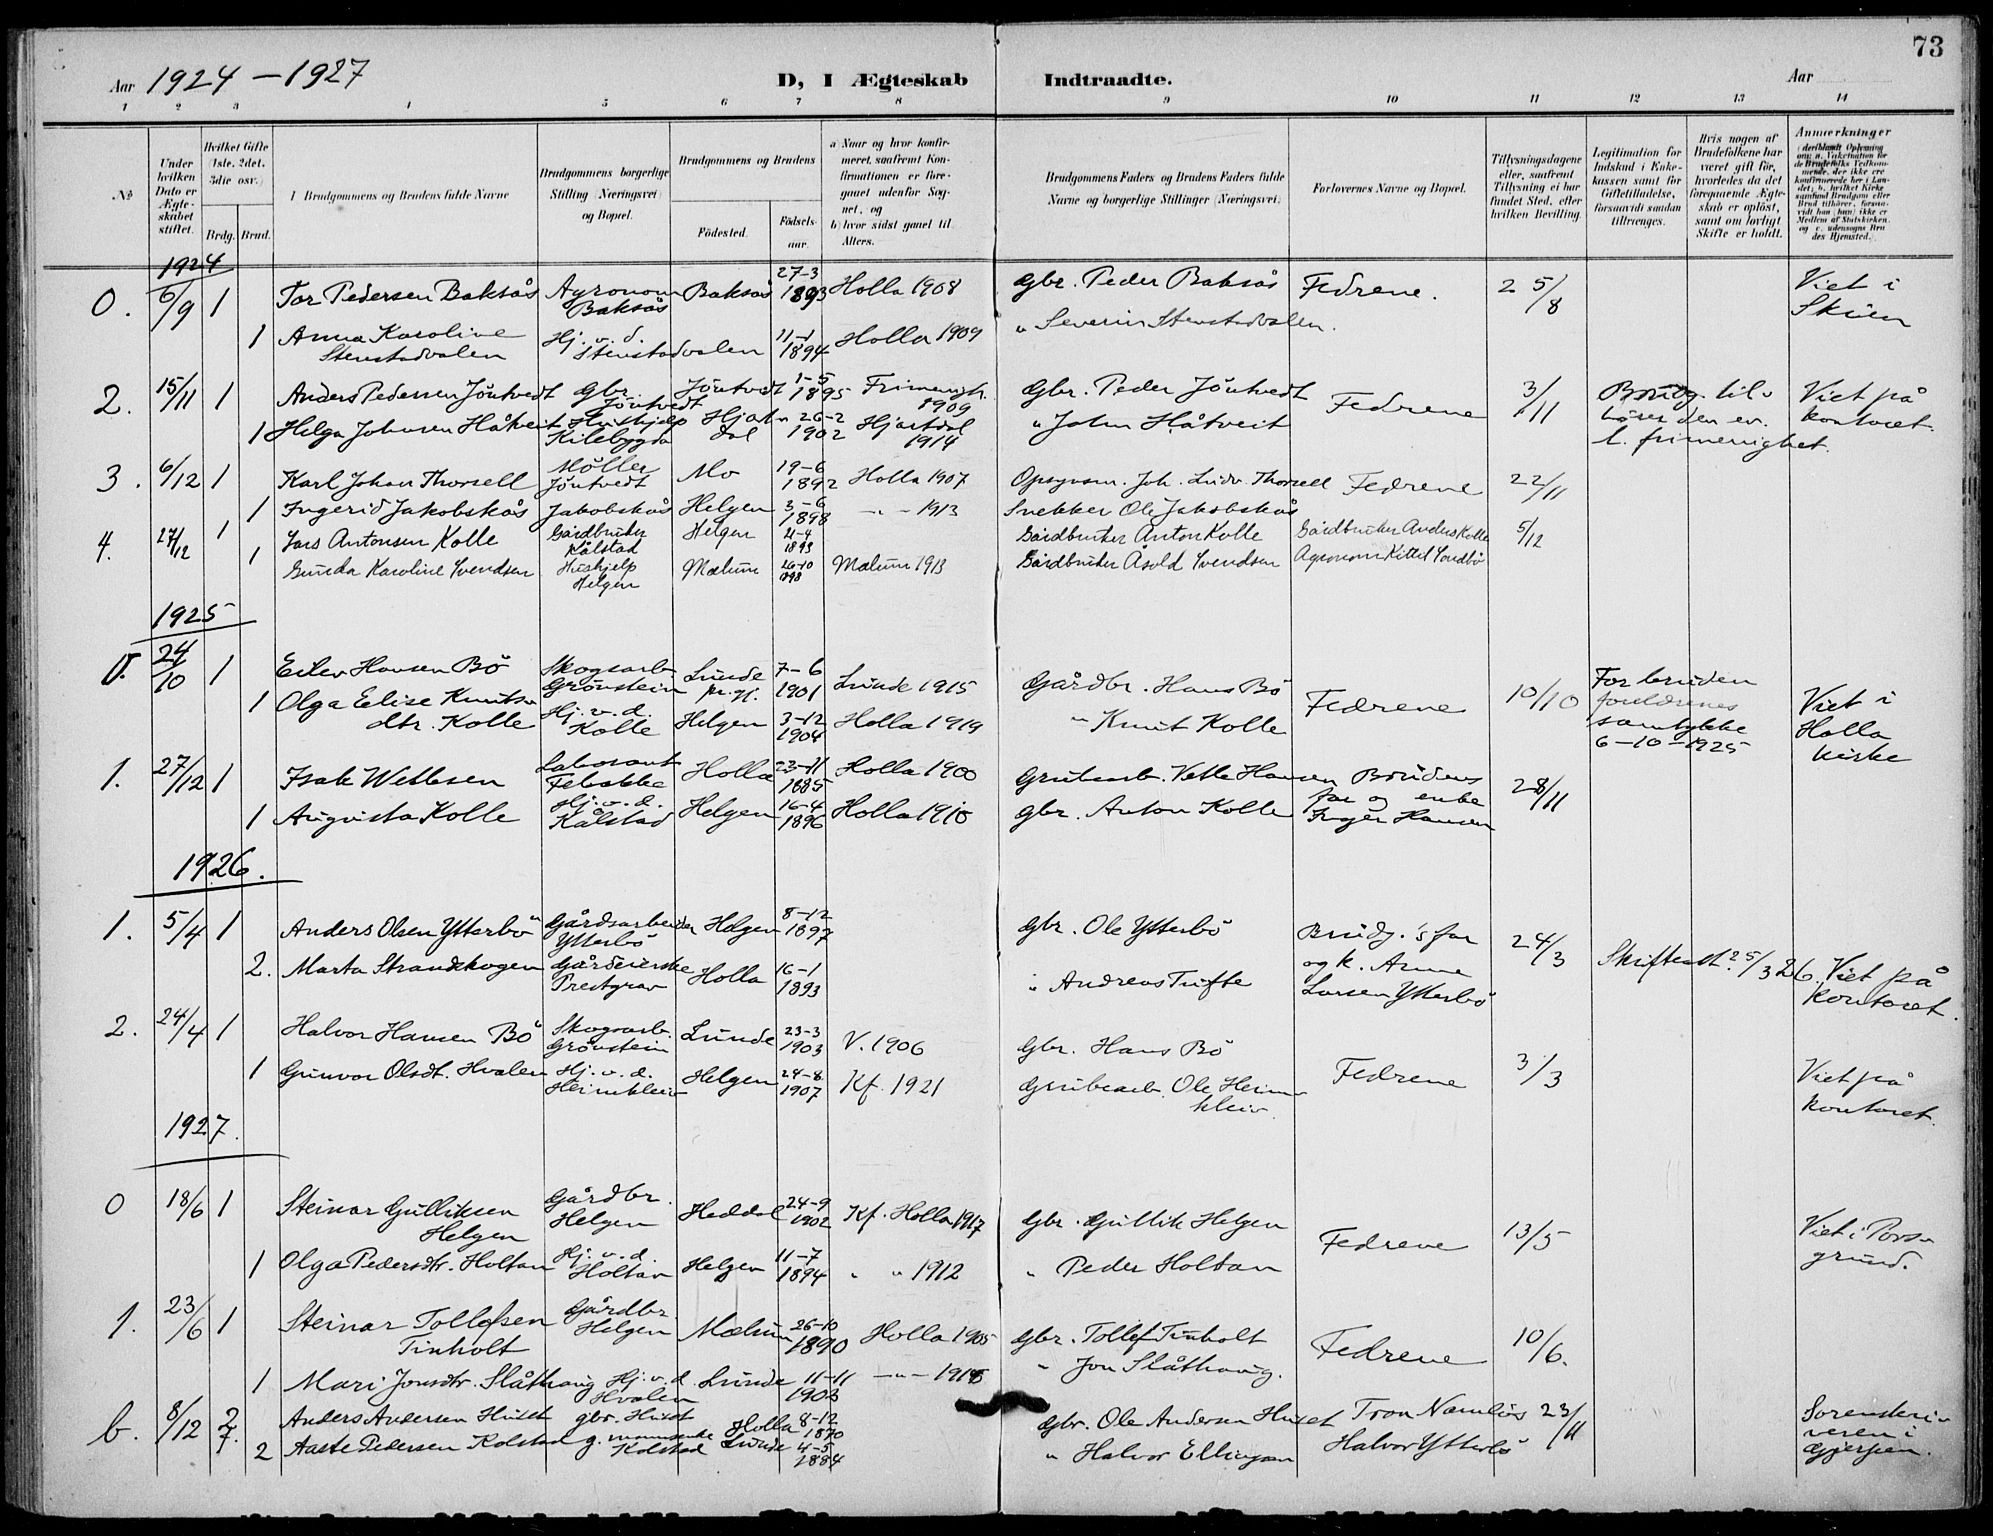 73
Aar 1924 – 1927 D, I Ægteskab Indtraadte. Aar
1 2 3 4 5 6 7 8 9 10 11 12 13 14
№
Under hvilken Dato er Ægteskabet stiftet.
Hvilket Gifte (1ste, 2det, 3die osv.)
Brdg. Brud.
I Brudgommens og Brudens fulde Navne
Brudgommens borgerlige Stilling (Næringsvei) og Bopæl.
Brudgommens og Brudens
Födested. Födselsaar.
a) Naar og hvor konfirmeret, saafremt Konfirmationen er foregaaet udenfor Sognet, og
b) hvor sidst gaaet til Alters.
Brudgommens Faders og Brudens Faders fulde Navne og borgerlige Stillinger (Næringsvei)
Forlovernes Navne og Bopæl.
Tillysningsdagene eller, saafremt Tillysning ei har fundet Sted, efter hvilken Bevilling.
Legitimation for Indskud i Enkekassen samt for Giftetilladelse, forsaavidt saadan tiltrænges.
Hvis nogen af Brudefolkene har været gift før, hvorledes da det foregaaende Ægteskab er opløst, samt om lovligt Skifte er holdt.
Anmærkninger (deriblandt Oplysning om: a. Vakcination for de Brudefolks Vedkommende, der ikke ere konfirmerede her i Landet; b. hvilket Kirkesamfund Brudgom eller Brud tilhører, forsaavidt han (hun) ikke er Medlem af Statskirken, og c. udensogns Brudes Hjemsted.).
1924
0. 6/9 1 Tor Pedersen Baksås Agronom Baksås Baksås 27-3 1893 Holla 1908 Gbr. Peder Baksås Fedrene. 2 5/8 Viet i Skien
1 Anna Karoline Stenstadvalen Hj. v. d. Stenstadvalen 11-1 1894 Holla 1909 " Severin Stenstadvalen.
2. 15/11 1 Anders Pedersen Jöntvedt Gbr. Jöntvedt Jöntvedt 1-5 1895 Frimenigh. 1909 Gbr. Peder Jöntvedt Fedrene 3/11 Brudg. tilhörer den ev. l. frimenighet. Viet på kontoret.
1 Helga Johnsen Håtveit Hushjelp Kilebygda Hjartdal 26-2 1902 Hjartdal 1914 " John Håtveit
3. 6/12 1 Karl Johan Thorsell Möller Jöntvedt Mo 19-6 1892 Holla 1907 Opsynsm. Joh. Ludv. Thorsell Fedrene 22/11
1 Ingerid Jakobskås Jakobskås Helgen 3-6 1898 – " – 1913 Snekker Ole Jakobskås
4. 27/12 1 Lars Antonsen Kolle Gårdbruker Kålstad Helgen 4-4 1893 Gårdbruker Anton Kolle Gårdbruker Anders Kolle 5/12
1 Gunda Karoline Svendsen Hushjelp Helgen Mælum 26-10 1898 Mælum 1913 Gårdbruker Åsold Svendsen Agronom Kittil Sundbö
1925
0. 24/10 1 Eilev Hansen Bö Skogsarb. Grönstein Lunde pr.gj. 7-6 1901 Lunde 1915 Gårdbr. Hans Bö Fedrene 10/10 For bruden foreldrenes samtykke 6-10-1925 Viet i Holla kirke
1 Olga Elise Knutsdtr. Kolle Hj. v. d. Kolle Helgen 3-12 1904 Holla 1919 " Knut Kolle
1. 27/12 1 Isak Vetlesen Laborant Holla 23-11 1885 Holla 1900 Grubearb. Vetle Hansen Brudens far og enke Inger Hansen 28/11
1 Augusta Kolle Hj. v. d. Kålstad Helgen 16-4 1896 Holla 1910 Gbr. Anton Kolle
1926.
1. 5/4 1 Anders Olsen Ytterbö Gårdsarbeider Ytterbö Helgen 8-12 1897 Gbr. Ole Ytterbö Brudg.'s far og k. Arne Larsen Ytterbö 24/3 Skifteatt. 25/3 26. Viet på kontoret.
2. Marta Strandskogen Gårdeierske Prestgrav Holla 16-1 1893 " Andreas Tufte
2. 24/4 1 Halvor Hansen Bö Skogsarb. Grönstein Lunde 23-3 1903 V. 1906 Gbr. Hans Bö Fedrene 31/3 Viet på kontoret.
1 Gunvor Olsdt. Hvalen Hj. v. d. Heimkleiv Helgen 24-8 1907 Kf. 1921 Grubearb. Ole Heimkleiv.
1927.
0 18/6 1 Steinar Gulliksen Helgen Gårdbr. Helgen Heddal 24-9 1902 Kf. Holla 1917 Gbr. Gullik Helgen Fedrene 13/5 Viet i Porsgrund.
1 Olga Pedersdtr. Holtan Hj. v. d. Holtan Helgen 11-7 1894 " " 1912 " Peder Holtan
1. 23/6 1 Steinar Tollefsen Tinholt Gårdbr Helgen Mælum 26-10 1890 Holla 1905 Gbr. Tollef Tinholt Fedrene 10/6.
1 Mari Jonsdtr. Slåthaug Hj. v. d. Hvalen Lunde 11-11 1903 – " – 1918 " Jon Slåthaug.
b. 8/12 2 Anders Andersen Huset gbr. Huset Holla 8-12 1870 Gbr. Ole Andersen Huset Tron Namlös 23/11 Sorenskriveren i Gjerpen.
2 Aaste Pedersen Kolstad Kolstad Lunde 4-5 1884 " Halvor Ellingsen Halvor Ytterbö